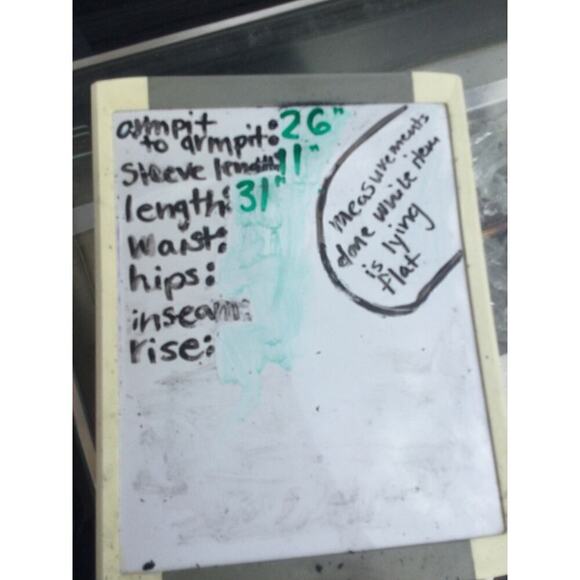 armpit
to armpit: 26"
sleeve length: 11"
length: 31"
waist:
hips:
inseam:
rise:
measurements
done while item
is lying
flat